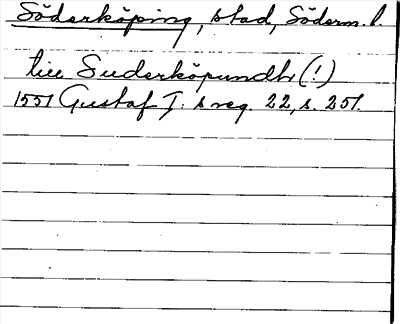 Söderköping, stad, Söderm. l.
till Suderköpundh (!)
1551 Gustaf I: s reg. 22, s. 251.